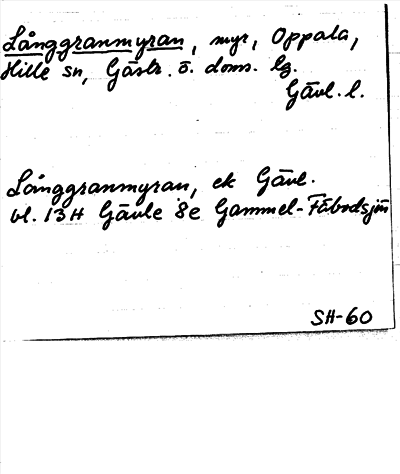 Långgranmyran, myr, Oppala,
Hille sn, Gästr. ö. doms. lg.
Gävl. l.
Långgranmyran, ek Gävl.
bl. 13H Gävle 8e Gammel-Fäbodsjön
SH-60